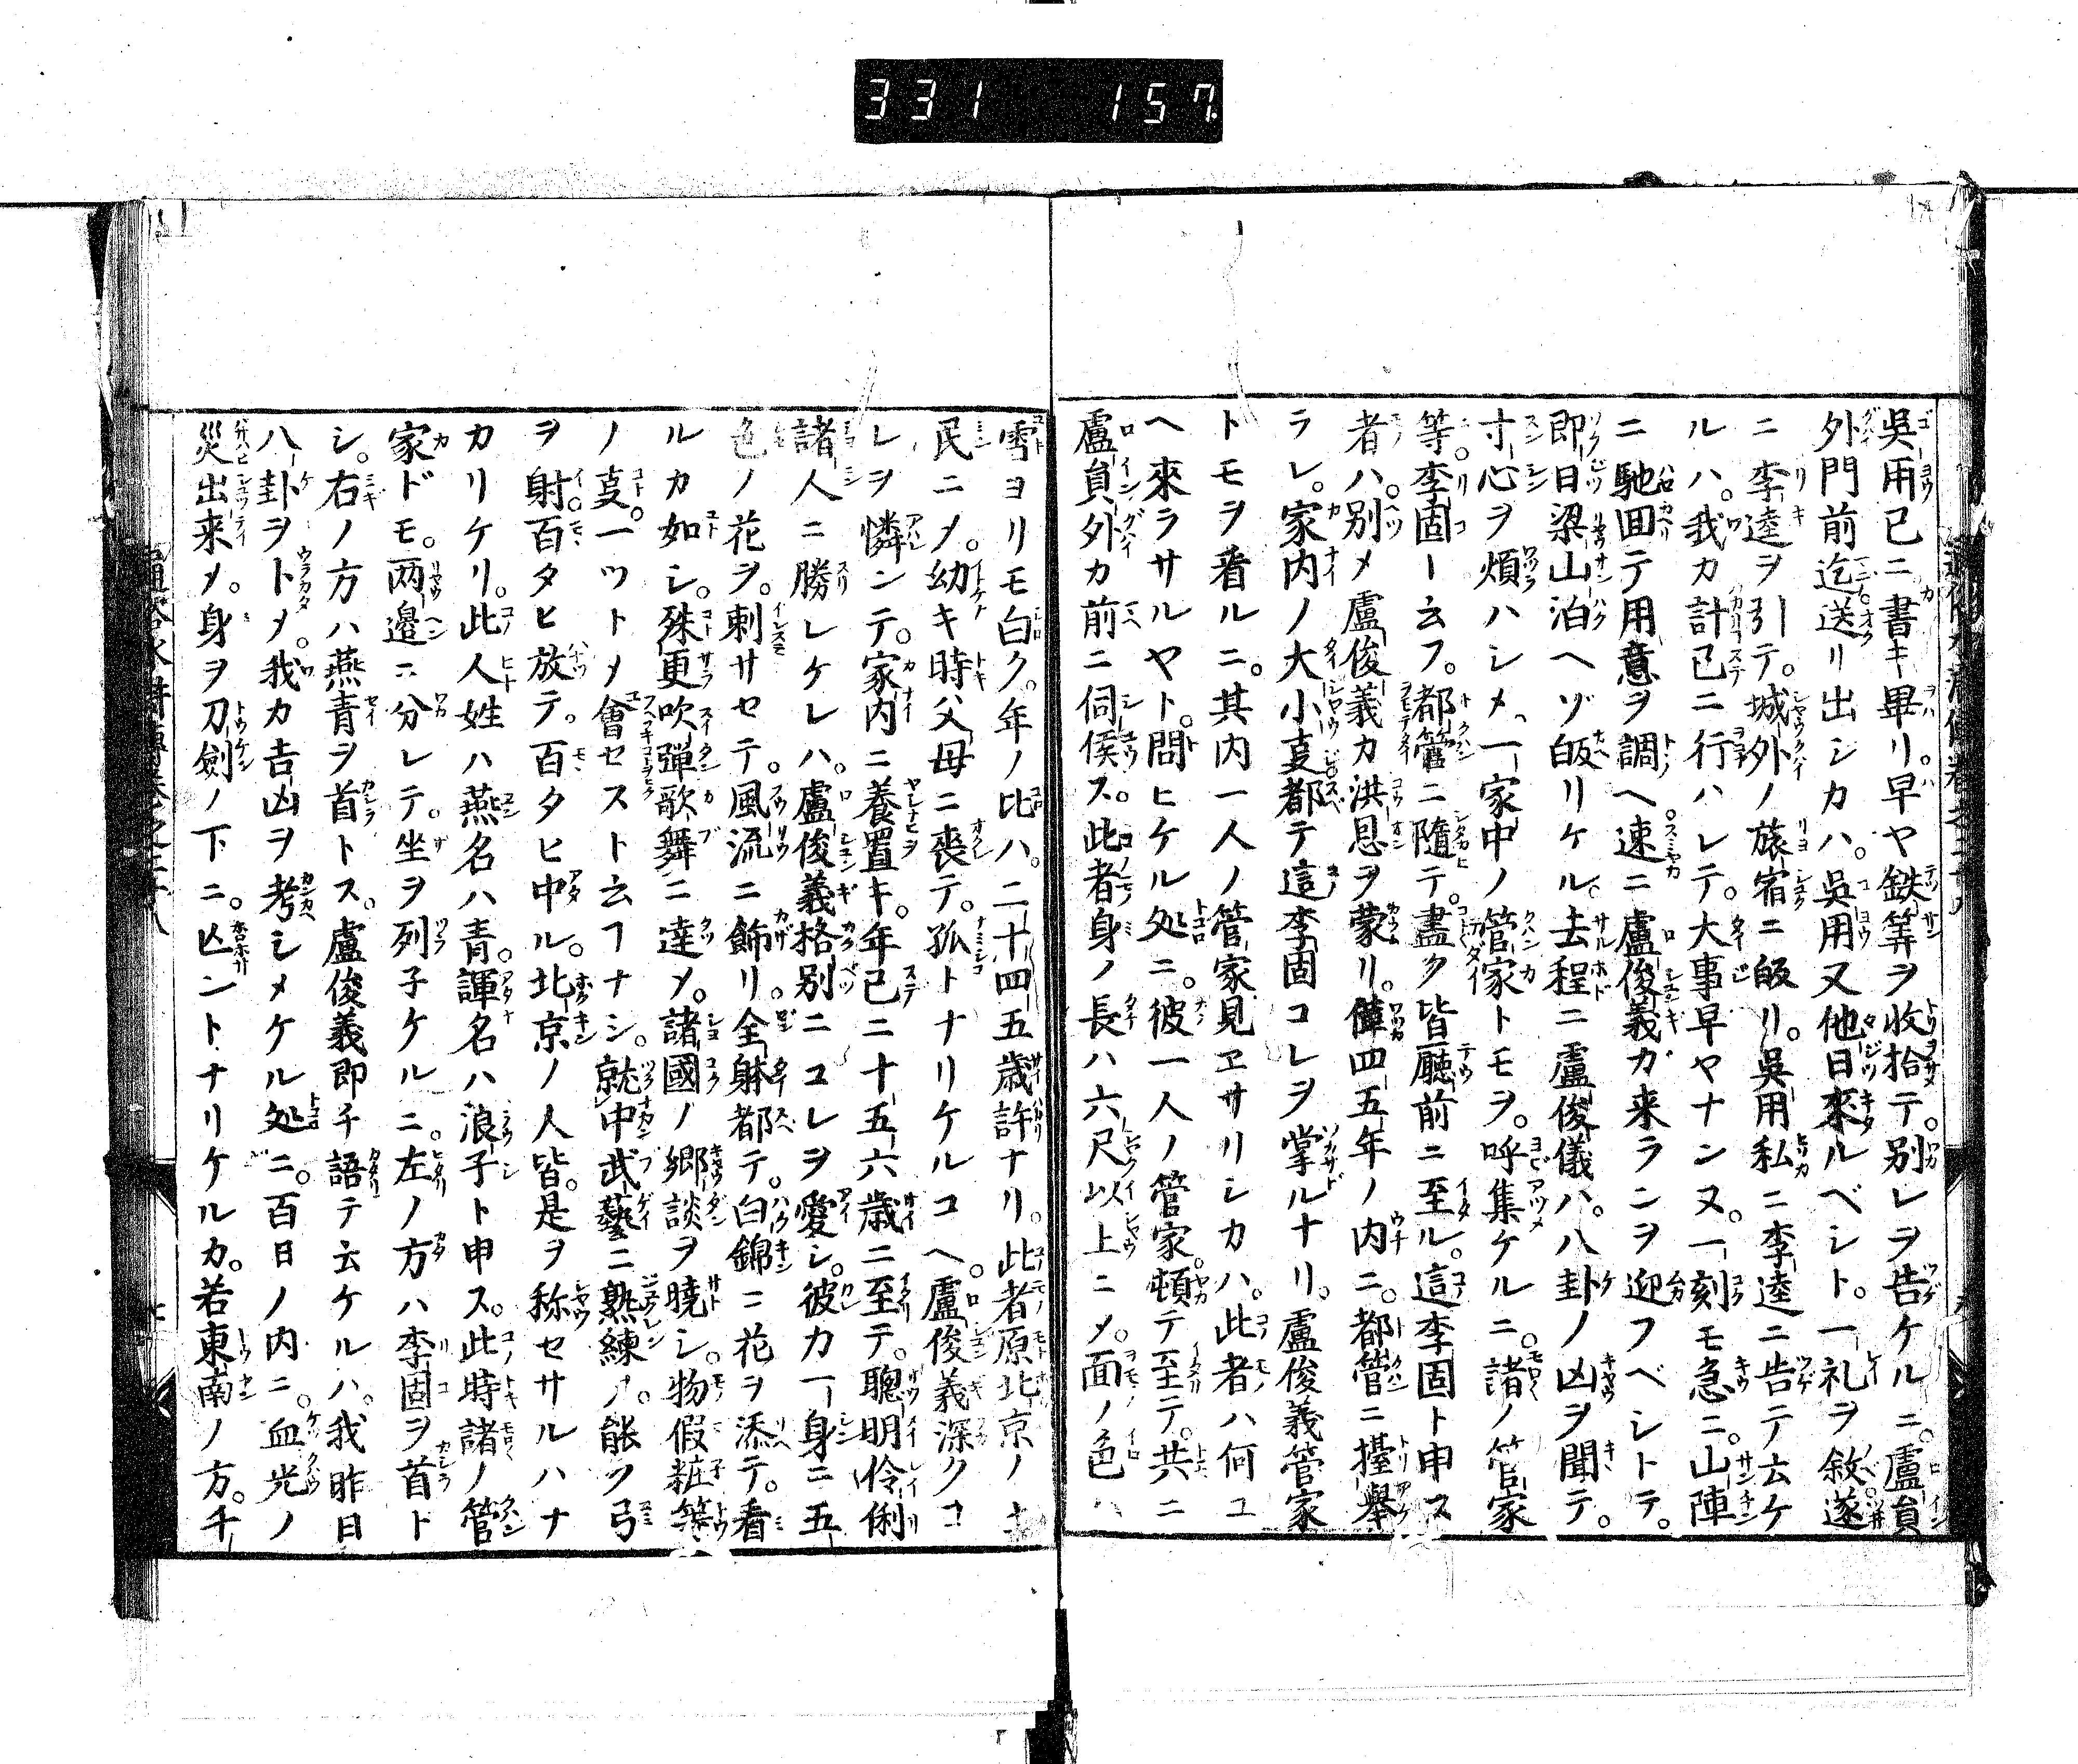 331 157
吳用已ニ書キ畢リ。早ヤ鉄筭ヲ收拾テ。別レヲ告ケルニ。盧貟
外門前迄送リ出シカハ。吳用又他日來ルベシト。一礼ヲ敘遂
ニ李逵ヲ引テ。城外ノ旅宿ニ皈リ。吳用私ニ李逵ニ告テ云ケ
ルハ。我カ計已ニ行ハレテ。大事早ヤナンヌ。一刻モ急ニ。山陣
ニ馳囬テ用意ヲ調ヘ。速ニ盧俊義カ来ランヲ迎フベシトテ。
即日梁山泊ヘゾ皈リケル。去程ニ盧俊儀ハ。八卦ノ凶ヲ聞テ。
寸心ヲ煩ハシメ。一家中ノ管家トモヲ。呼集ケルニ。諸ノ管家
等。李固ト云フ。都管ニ隨テ。盡ク皆廳前ニ至ル。這李固ト申ス
者ハ。別メ盧俊義カ洪恩ヲ蒙リ。僅四五年ノ内ニ。都管ニ擡舉
ラレ。家内ノ大小叓都テ這李固コレヲ掌ルナリ。盧俊義管家
トモヲ看ルニ。其内一人ノ管家見ヱサリシカハ。此者ハ何ユ
ヘ來ラサルヤト。問ヒケル処ニ。彼一人ノ管家。頓テ至テ。共ニ
盧貟外カ前ニ伺侯ス。此者身ノ長ハ六尺以上ニメ。面ノ色ハ
雪ヨリモ白ク。年ノ比ハ。二十四五歳許ナリ。此者原北京ノ土
民ニメ。幼キ時父母ニ喪テ。孤トナリケルユヘ。盧俊義深クコ
レヲ憐ンテ。家内ニ養置キ。年已ニ十五六歳ニ至テ。聰明伶俐
諸人ニ勝レケレハ。盧俊義格別ニコレヲ愛シ。彼カ一身ニ五
色ノ花ヲ。刺サセテ。風流ニ飾リ。全躰都テ。白錦ニ花ヲ添テ。看
ルカ如シ。殊更吹弾歌舞ニ達メ。諸國ノ郷談ヲ曉シ。物假粧等
ノ叓。一ツトメ會セスト云フナシ。就中武藝ニ熟練メ。能ク弓
ヲ射百タヒ放テ。百タヒ中ル。北京ノ人皆。是ヲ称セサルハナ
カリケリ。此人姓ハ燕名ハ青。諢名ハ浪子ト申ス。此時諸ノ管
家ドモ。兩邉ニ分レテ。坐ヲ列子ケルニ。左ノ方ハ李固ヲ首ト
シ。右ノ方ハ燕青ヲ首トス。盧俊義即チ語テ云ケルハ。我昨日
八卦ヲトメ。我カ吉凶ヲ考シメケル処ニ。百日ノ内ニ。血光ノ
災出来メ。身ヲ刀劍ノ下ニ。亾ントナリケルカ。若東南ノ方。千